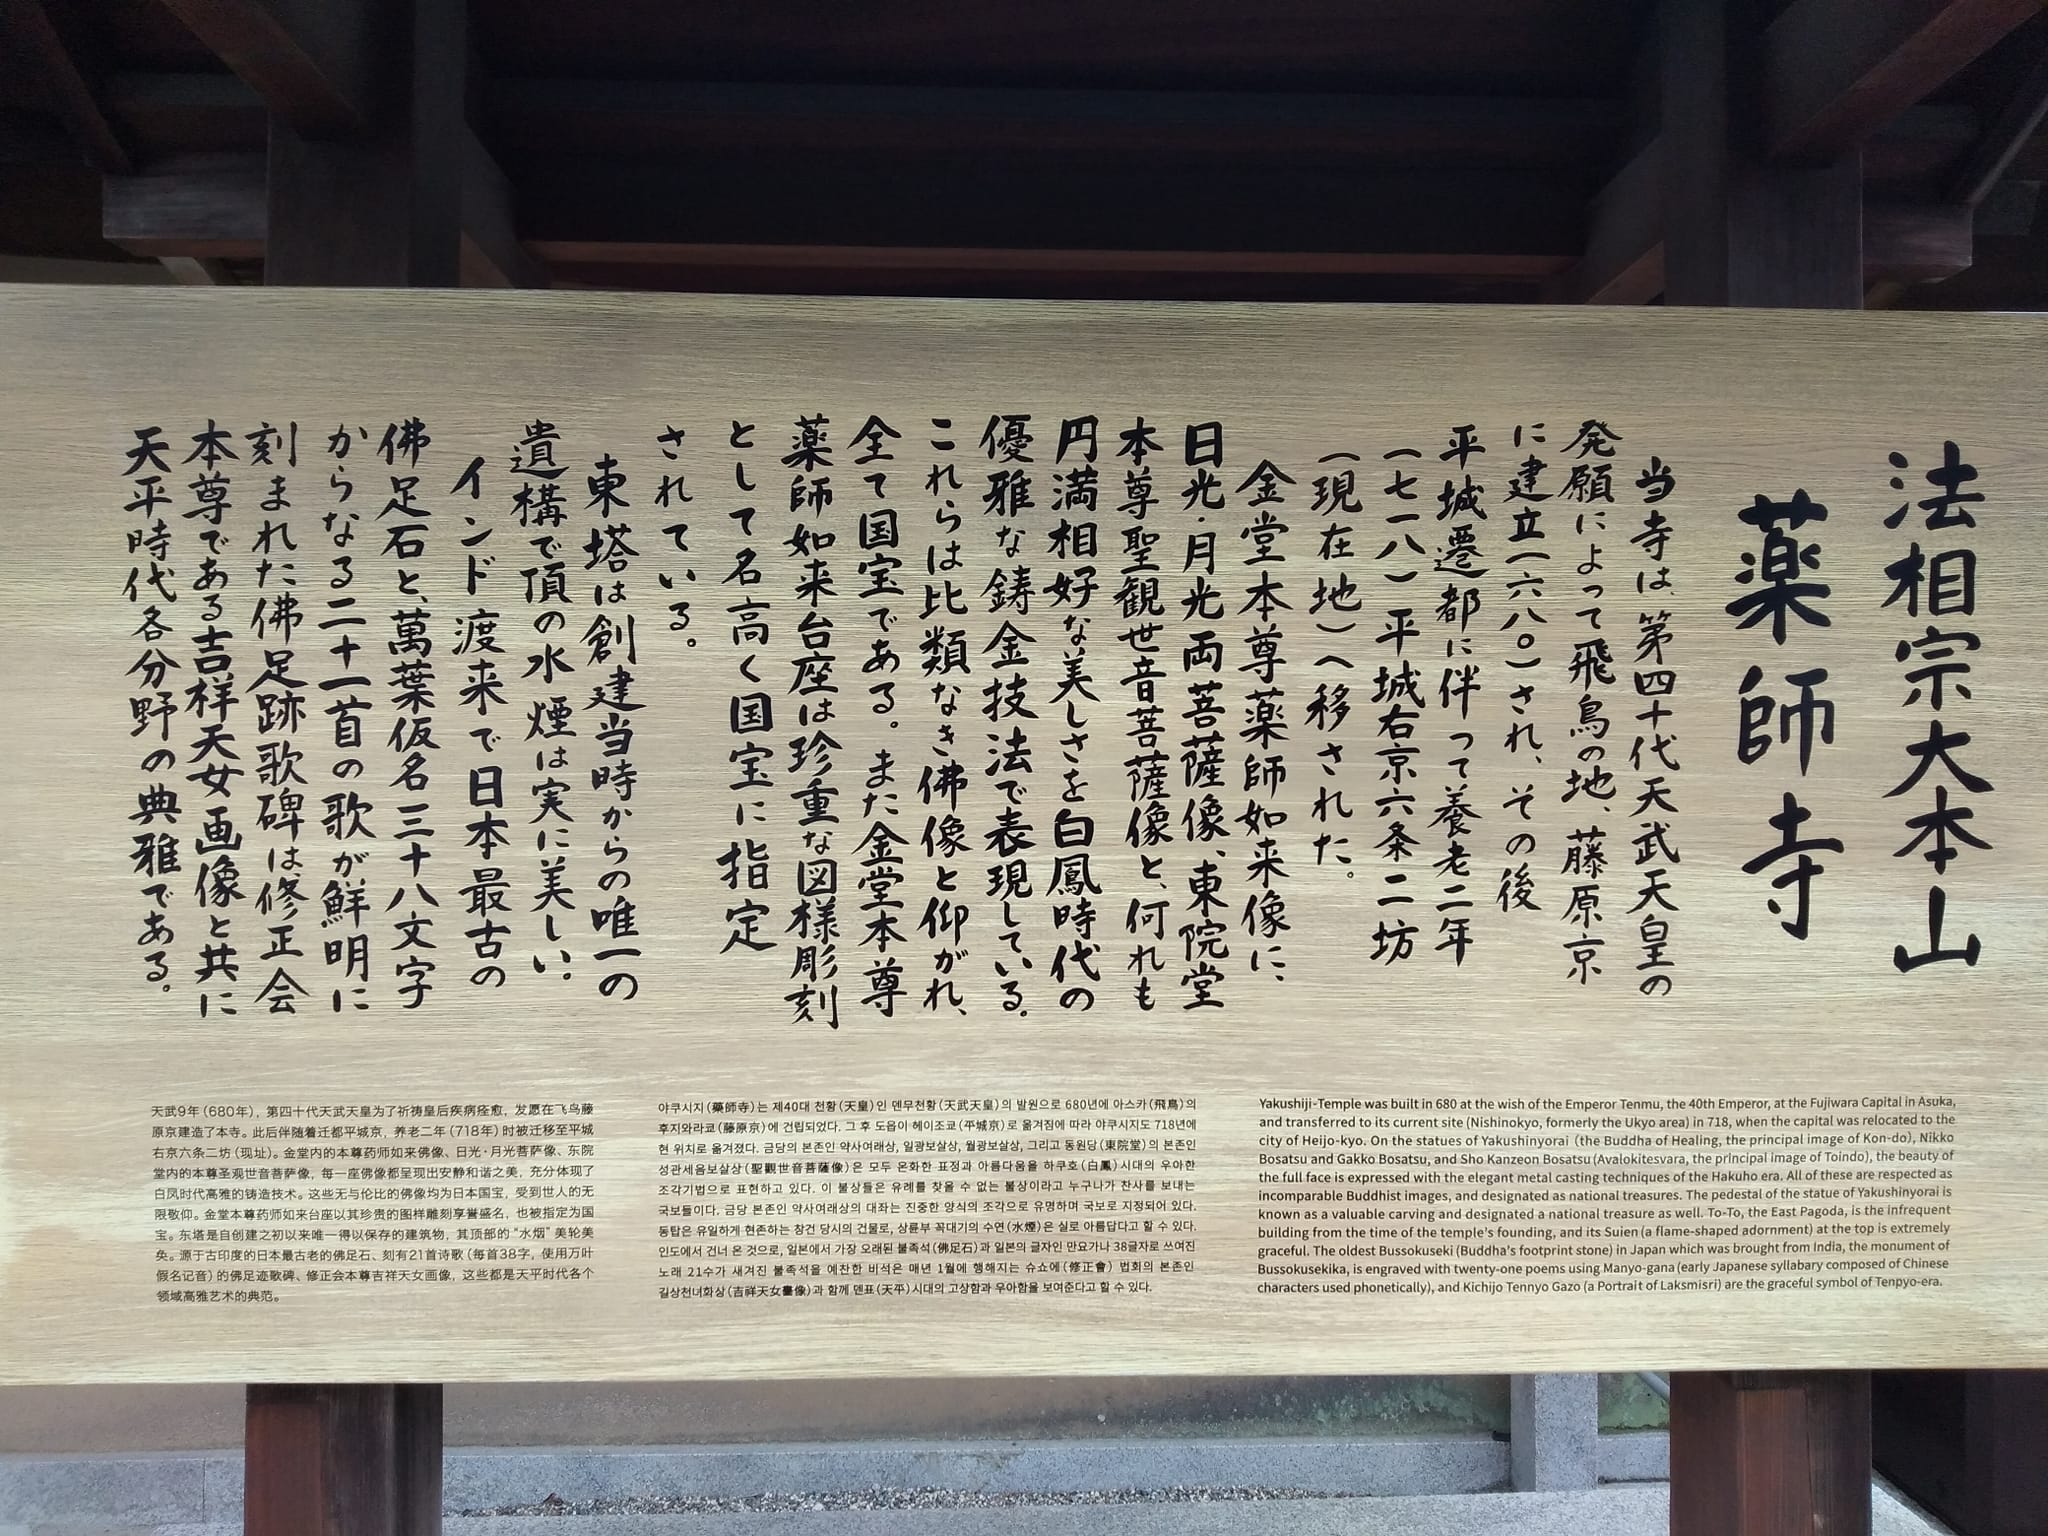 法相宗大本山
薬師寺
当寺は、第四十代天武天皇の
発願によって飛鳥の地、藤原京
に建立(六八〇)され、その後
平城遷都に伴って養老二年
(七一八)平城右京六条二坊
(現在地)へ移された。
金堂本尊薬師如来像に、
日光・月光両菩薩像、東院堂
本尊聖観世音菩薩像と、何れも
円満相好な美しさを白鳳時代の
優雅な鋳金技法で表現している。
これらは比類なき佛像と仰がれ、
全て国宝である。また金堂本尊
薬師如来台座は珍重な図様彫刻
として名高く国宝に指定
されている。
東塔は創建当時からの唯一の
遺構で頂の水煙は実に美しい。
インド渡来で日本最古の
佛足石と、萬葉仮名三十八文字
からなる二十一首の歌が鮮明に
刻まれた佛足跡歌碑は、修正会
本尊である吉祥天女画像と共に
天平時代各分野の典雅である。
天武9年(680年),第四十代天武天皇为了祈祷皇后疾病痊愈,发愿在飞鸟藤
原京建造了本寺。此后伴随着迁都平城京,养老二年(718年)时被迁移至平城
右京六条二坊(现址)。金堂内的本尊药师如来佛像、日光・月光菩萨像、东院
堂内的本尊圣观世音菩萨像,每一座佛像都呈现出安静和谐之美,充分体现了
白凤时代高雅的铸造技术。这些无与伦比的佛像均为日本国宝,受到世人的无
限敬仰。金堂本尊药师如来台座以其珍贵的图样雕刻享誉盛名,也被指定为国
宝。东塔是自创建之初以来唯一得以保存的建筑物,其顶部的“水烟”美轮美
奂。源于古印度的日本最古老的佛足石、刻有21首诗歌(每首38字,使用万叶
假名记音)的佛足迹歌碑、修正会本尊吉祥天女画像,这些都是天平时代各个
领域高雅艺术的典范。
야쿠시지(藥師寺)는 제40대 천황(天皇)인 덴무천황(天武天皇)의 발원으로 680년에 아스카(飛鳥)의
후지와라쿄(藤原京)에 건립되었다. 그 후 도읍이 헤이조쿄(平城京)로 옮겨짐에 따라 야쿠시지도 718년에
현 위치로 옮겨졌다. 금당의 본존인 약사여래상, 일광보살상, 월광보살상, 그리고 동원당(東院堂)의 본존인
성관세음보살상(聖觀世音菩薩像)은 모두 온화한 표정과 아름다움을 하쿠호(白鳳)시대의 우아한
조각기법으로 표현하고 있다. 이 불상들은 유례를 찾을 수 없는 불상이라고 누구나가 찬사를 보내는
국보들이다. 금당 본존인 약사여래상의 대좌는 진중한 양식의 조각으로 유명하며 국보로 지정되어 있다.
동탑은 유일하게 현존하는 창건 당시의 건물로, 상륜부 꼭대기의 수연(水煙)은 실로 아름답다고 할 수 있다.
인도에서 건너 온 것으로, 일본에서 가장 오래된 불족석(佛足石)과 일본의 글자인 만요가나 38글자로 쓰여진
노래 21수가 새겨진 불족석을 예찬한 비석은 매년 1월에 행해지는 슈쇼에(修正會) 법회의 본존인
길상천녀화상(吉祥天女畫像)과 함께 덴표(天平)시대의 고상함과 우아함을 보여준다고 할 수 있다.
Yakushiji-Temple was built in 680 at the wish of the Emperor Tenmu, the 40th Emperor, at the Fujiwara Capital in Asuka,
and transferred to its current site (Nishinokyo, formerly the Ukyo area) in 718, when the capital was relocated to the
city of Heijo-kyo. On the statues of Yakushinyorai (the Buddha of Healing, the principal image of Kon-do), Nikko
Bosatsu and Gakko Bosatsu, and Sho Kanzeon Bosatsu (Avalokitesvara, the principal image of Toindo), the beauty of
the full face is expressed with the elegant metal casting techniques of the Hakuho era. All of these are respected as
incomparable Buddhist images, and designated as national treasures. The pedestal of the statue of Yakushinyorai is
known as a valuable carving and designated a national treasure as well. To-To, the East Pagoda, is the infrequent
building from the time of the temple's founding, and its Suien (a flame-shaped adornment) at the top is extremely
graceful. The oldest Bussokuseki (Buddha's footprint stone) in Japan which was brought from India, the monument of
Bussokusekika, is engraved with twenty-one poems using Manyo-gana (early Japanese syllabary composed of Chinese
characters used phonetically), and Kichijo Tennyo Gazo (a Portrait of Laksmisri) are the graceful symbol of Tenpyo-era.